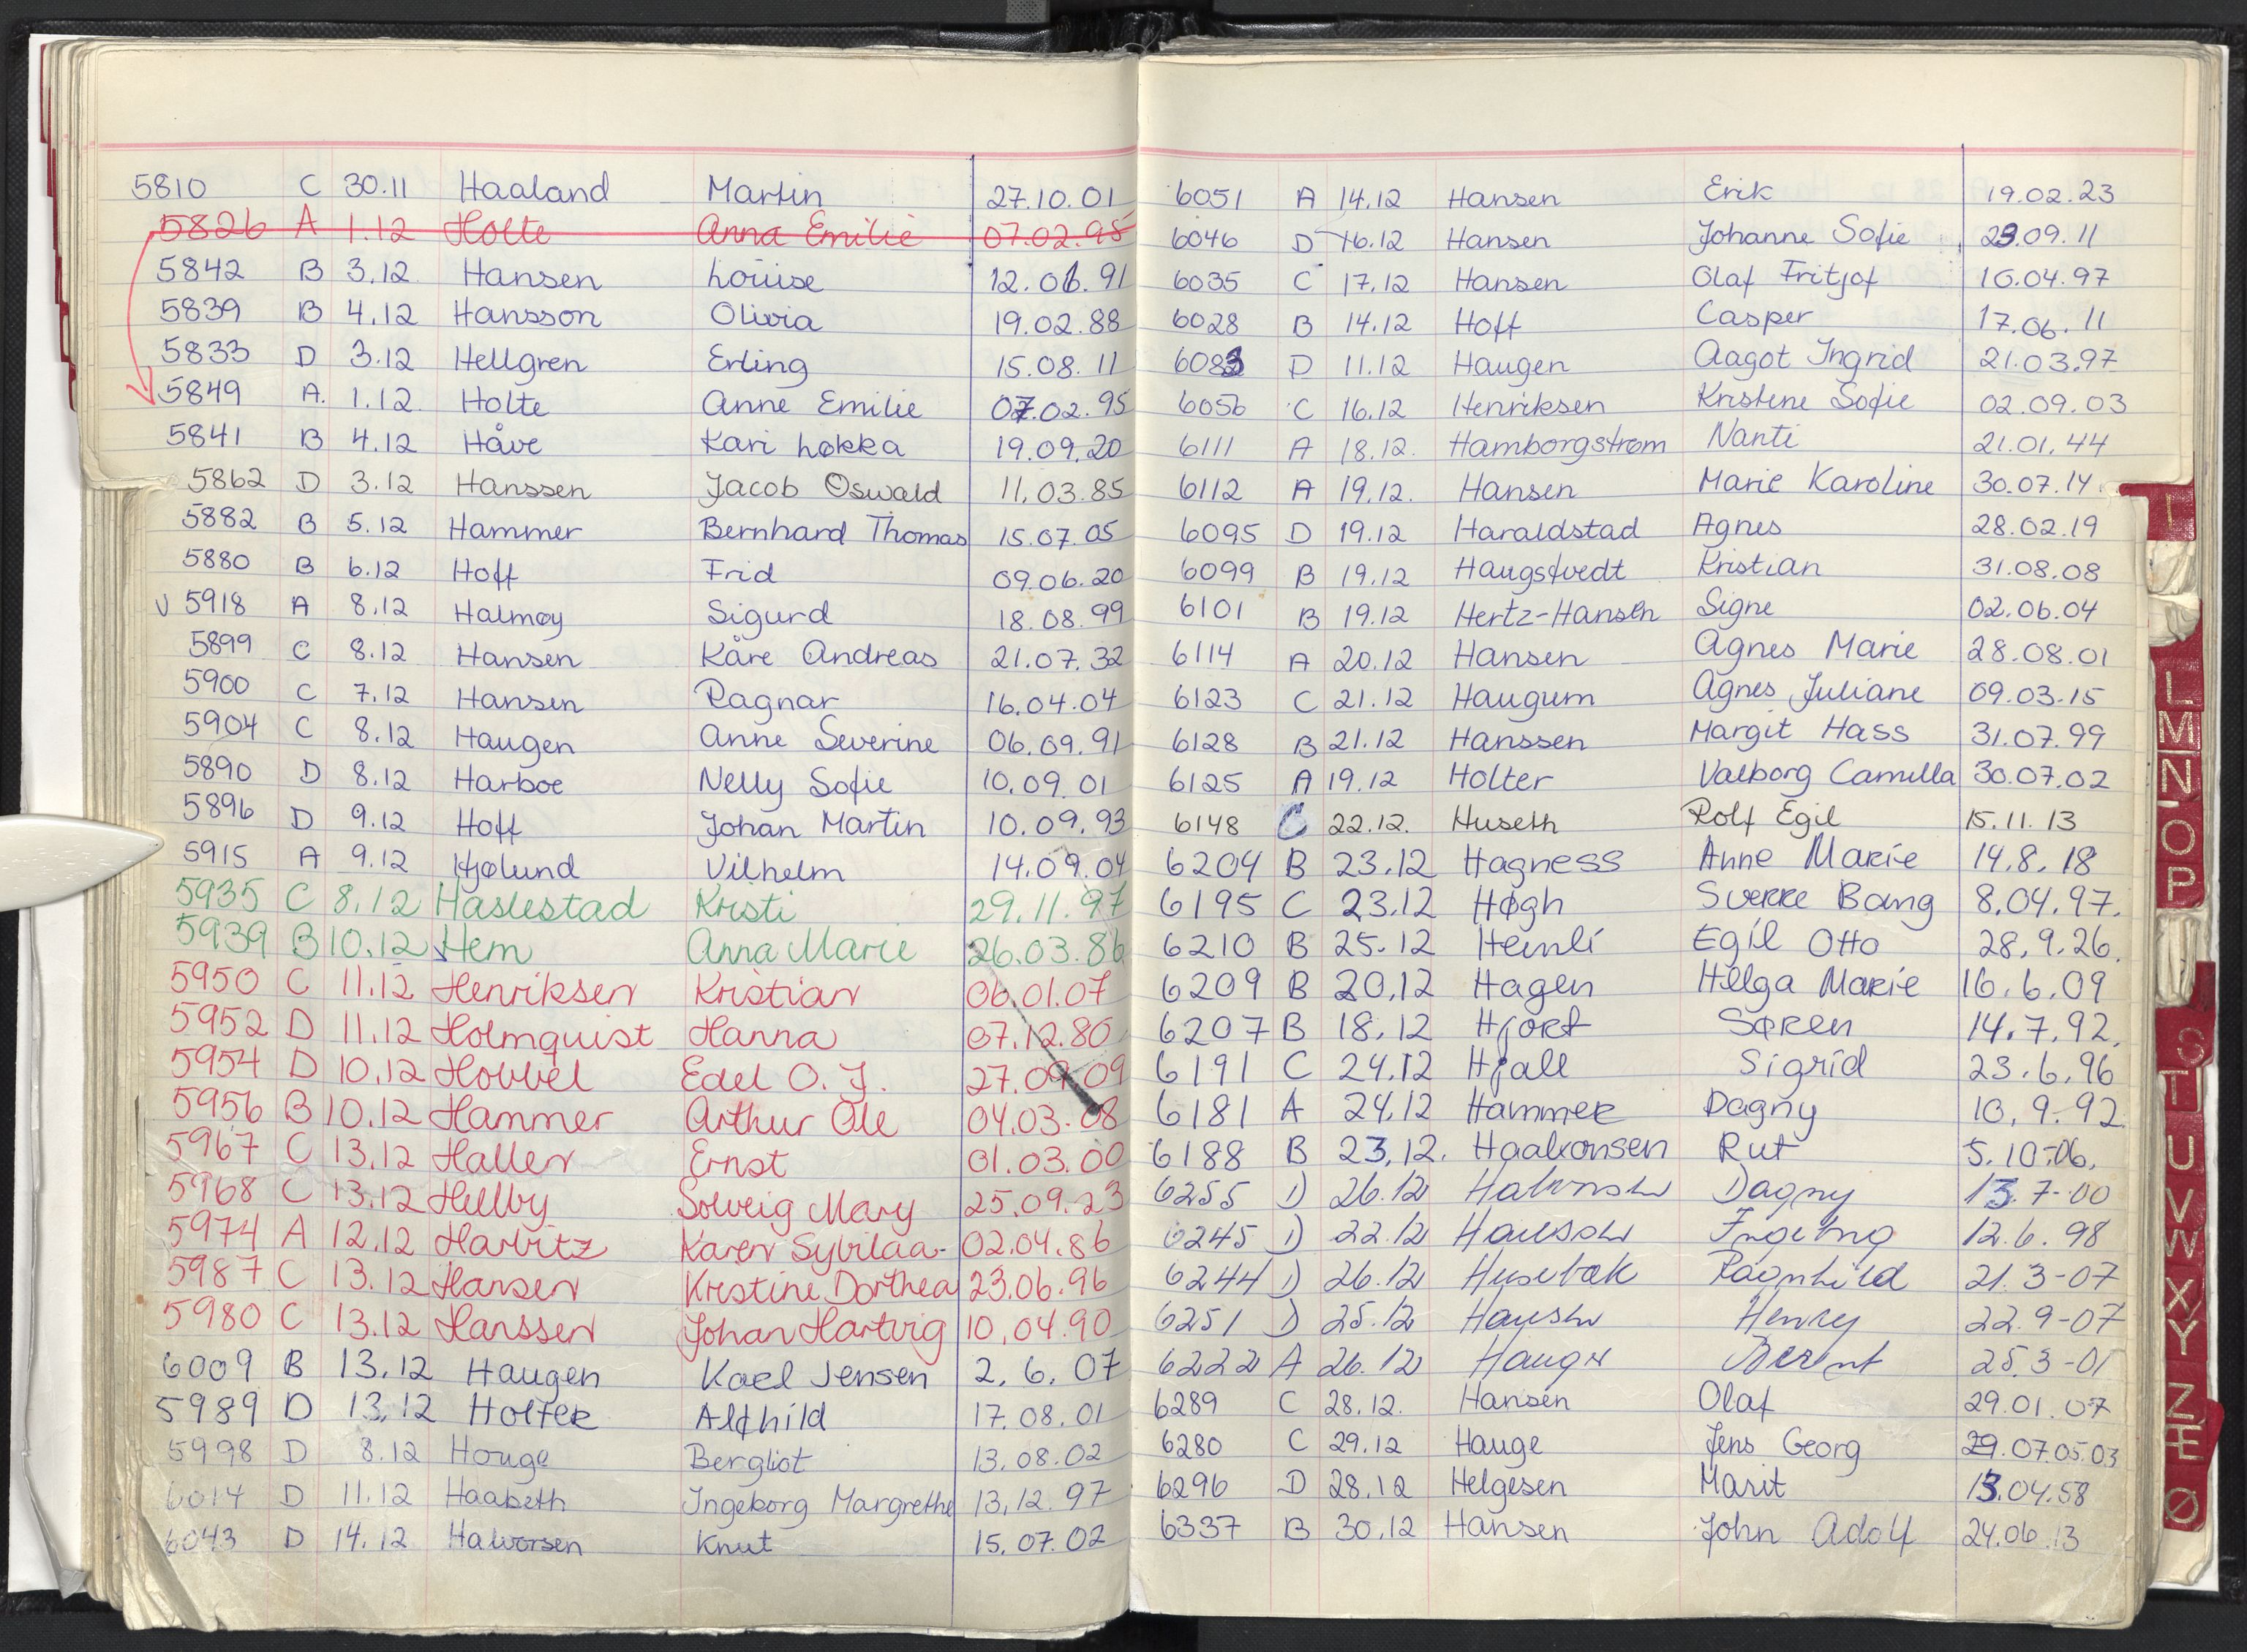 5810 C 30.11 Haaland Martin 27.10.01
5826 A 1.12 Holte Anna Emilie 07.02.95
5842 B 3.12 Hansen Louise 12.06.91
5839 B 4.12 Hansson Olivia 19.02.88
5833 D 3.12 Hellgren Erling 15.08.11
5849 A. 1.12 Holte Anne Emilie 07.02.95
5841 B 4.12 Håve Kari Løkka 19.09.20
5862 D 3.12 Hanssen Jacob Oswald 11.03.85
5882 B 5.12 Hammer Bernhard Thomas 15.07.05
5880 B 6.12 Hoff Frid 09.06.20
V 5918 A 8.12 Halmøy Sigurd 18.08.99
5899 C 8.12 Hansen Kåre Andreas 21.07.32
5900 C 7.12 Hansen Ragnar 16.04.04
5904 C 8.12 Haugen Anne Severine 06.09.91
5890 D 8.12 Harboe Nelly Sofie 10.09.01
5896 D 9.12 Hoff Johan Martin 10.09.93
5915 A 9.12 Hjølund Vilhelm 14.09.04
5935 C 8.12 Haslestad Kristi 29.11.97
5939 B 10.12 Hem Anna Marie 26.03.86
5950 C 11.12 Henriksen Kristian 06.01.07
5952 D 11.12 Holmquist Hanna 07.12.80
5954 D 10.12 Hobbel Edel O. J. 27.09.09
5956 B 10.12 Hammer Arthur Ole 04.03.08
5967 C 13.12 Haller Ernst 01.03.00
5968 C 13.12 Hellby Solveig Mary 25.09.23
5974 A 12.12 Harbitz Karen Sybilaa- 02.04.86
5987 C 13.12 Hansen Kristine Dorthea 23.06.96
5980 C 13.12 Hanssen Johan Hartvig 10.04.90
6009 B 13.12 Haugen Karl Jensen 2.6.07
5989 D 13.12 Holter Alfhild 17.08.01
5998 D 8.12 Houge Bergliot 13.08.02
6014 D 11.12 Haabeth Ingeborg Margrethe 13.12.97
6043 D 14.12 Halvorsen Knut 15.07.02
6051 A 14.12 Hansen Erik 19.02.23
6046 D 16.12 Hansen Johanne Sofie 29.09.11
6035 C 17.12 Hansen Olaf Fritjof 10.04.97
6028 B 14.12 Hoff Casper 17.06.11
6083 D 11.12 Haugen Aagot Ingrid 21.03.97
6056 C 16.12 Henriksen Kristine Sofie 02.09.03
6111 A 18.12. Hamborgstrøm Nanti 21.01.44
6112 A 19.12. Hansen Marie Karoline 30.07.14
6095 D 19.12 Haraldstad Agnes 28.02.19
6099 B 19.12 Haugstvedt Kristian 31.08.08
6101 B 19.12 Hertz-Hansen Signe 02.06.04
6114 A 20.12 Hansen Agnes Marie 28.08.01
6123 C 21.12 Haugum Agnes Juliane 09.03.15
6128 B 21.12 Hanssen Margit Hass 31.07.99
6125 A 19.12 Holter Valborg Camilla 30.07.02
6148 C 22.12. Huseth Rolf Egil 15.11.13
6204 B 23.12 Hagness Anne Marie 14.8.18
6195 C 23.12 Høgh Sverre Bang 8.04.97.
6210 B 25.12 Hemli Egil Otto 28.9.26.
6209 B 20.12 Hagen Helga Marie 16.6.09
6207 B 18.12 Hjort Søren 14.7.92.
6191 C 24.12 Hjall Sigrid 23.6.96
6181 A 24.12 Hammer Dagny 10.9.92
6188 B 23.12. Haakonsen Rut 5.10.06.
6255 D 26.12 Dagny 13.7-00
6245 D 22.12 Ingeborg 12.6.98
6244 D 26.12 Husebæk Ragnhild 21.3-07
6251 D 25.12 Hansen Henry 22.9-07
6222 A 26.12 Hauger Bernt 25.3-01
6289 C 28.12. Hansen Olaf 29.01.07
6280 C 29.12 Hauge Jens Georg 29.07.05.03
6296 D 28.12 Helgesen Marit 13.04.58
6337 B 30.12 Hansen John Adolf 24.06.13
I
L
M
N
O
P
S
T
U
V
W
X
Y
Z
Æ
Ø